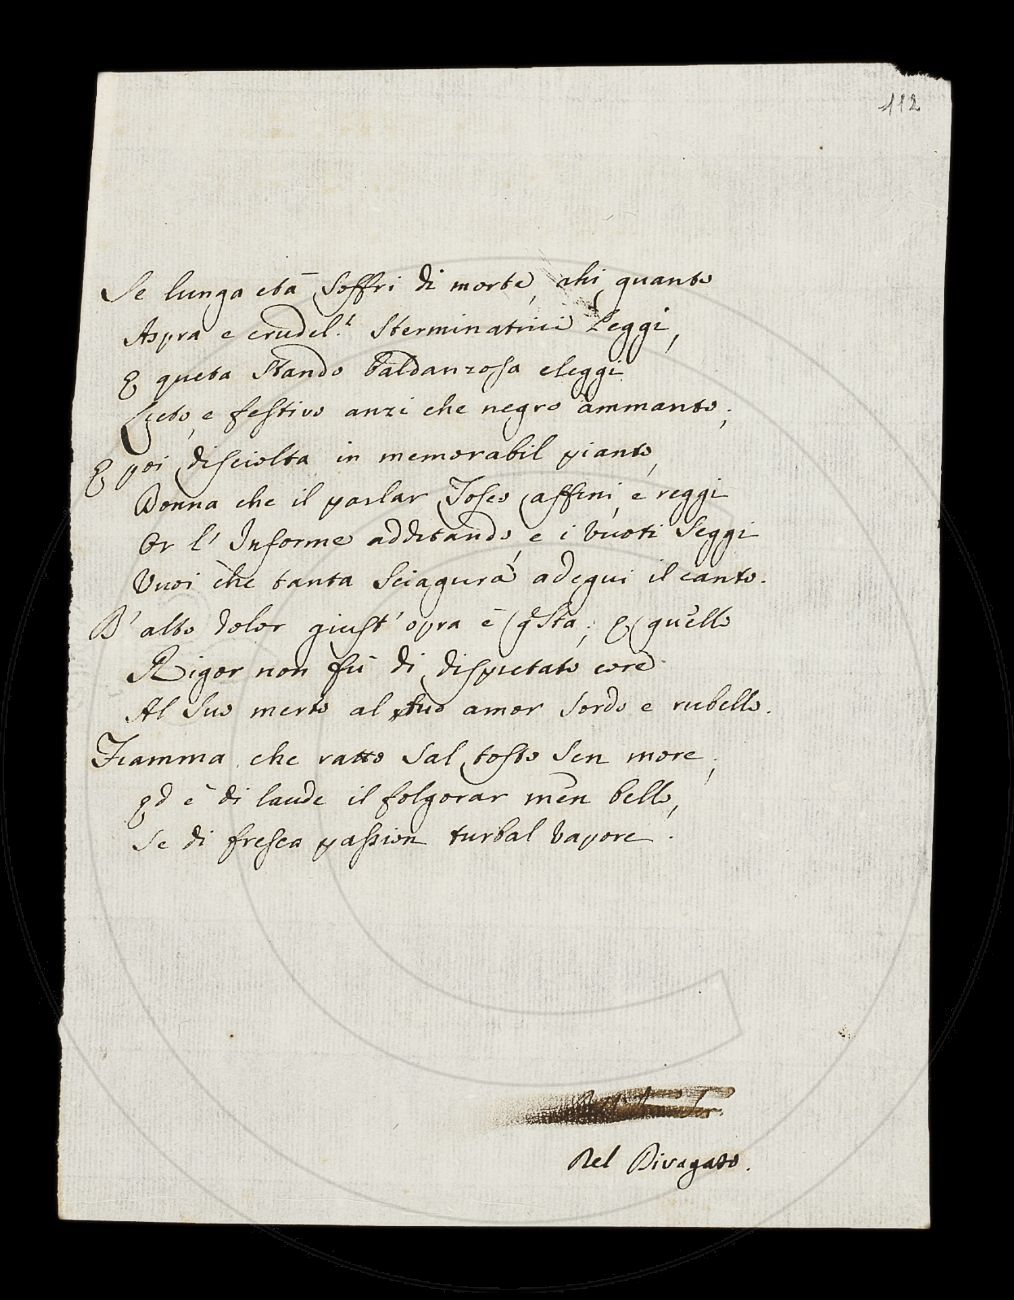 112
Se lunga età soffri di morte, ahi quanto
Aspra e crudel.l Sterminatrice Leggi,
E queta stando baldanzosa eleggi
Lieto, e festivo anzi che negro ammanto;
E poi disciolta in memorabil pianto,
Donna che il parlar Tosco affini, e reggi
Or l' Insorme additando, e i vuoti Seggi
Vuoi che tanta Sciagura adegui il canto.
D' alto dolor giust' opra è qsta; E quello
Rigor non fù di dispietato core
Al suo merto al suo amor sordo e rubello.
Fiamma che ratto sal tosto sen more;
Ed è di laude il folgorar men bello,
Se di fresca passion turbal vapore.
Del Divagato.